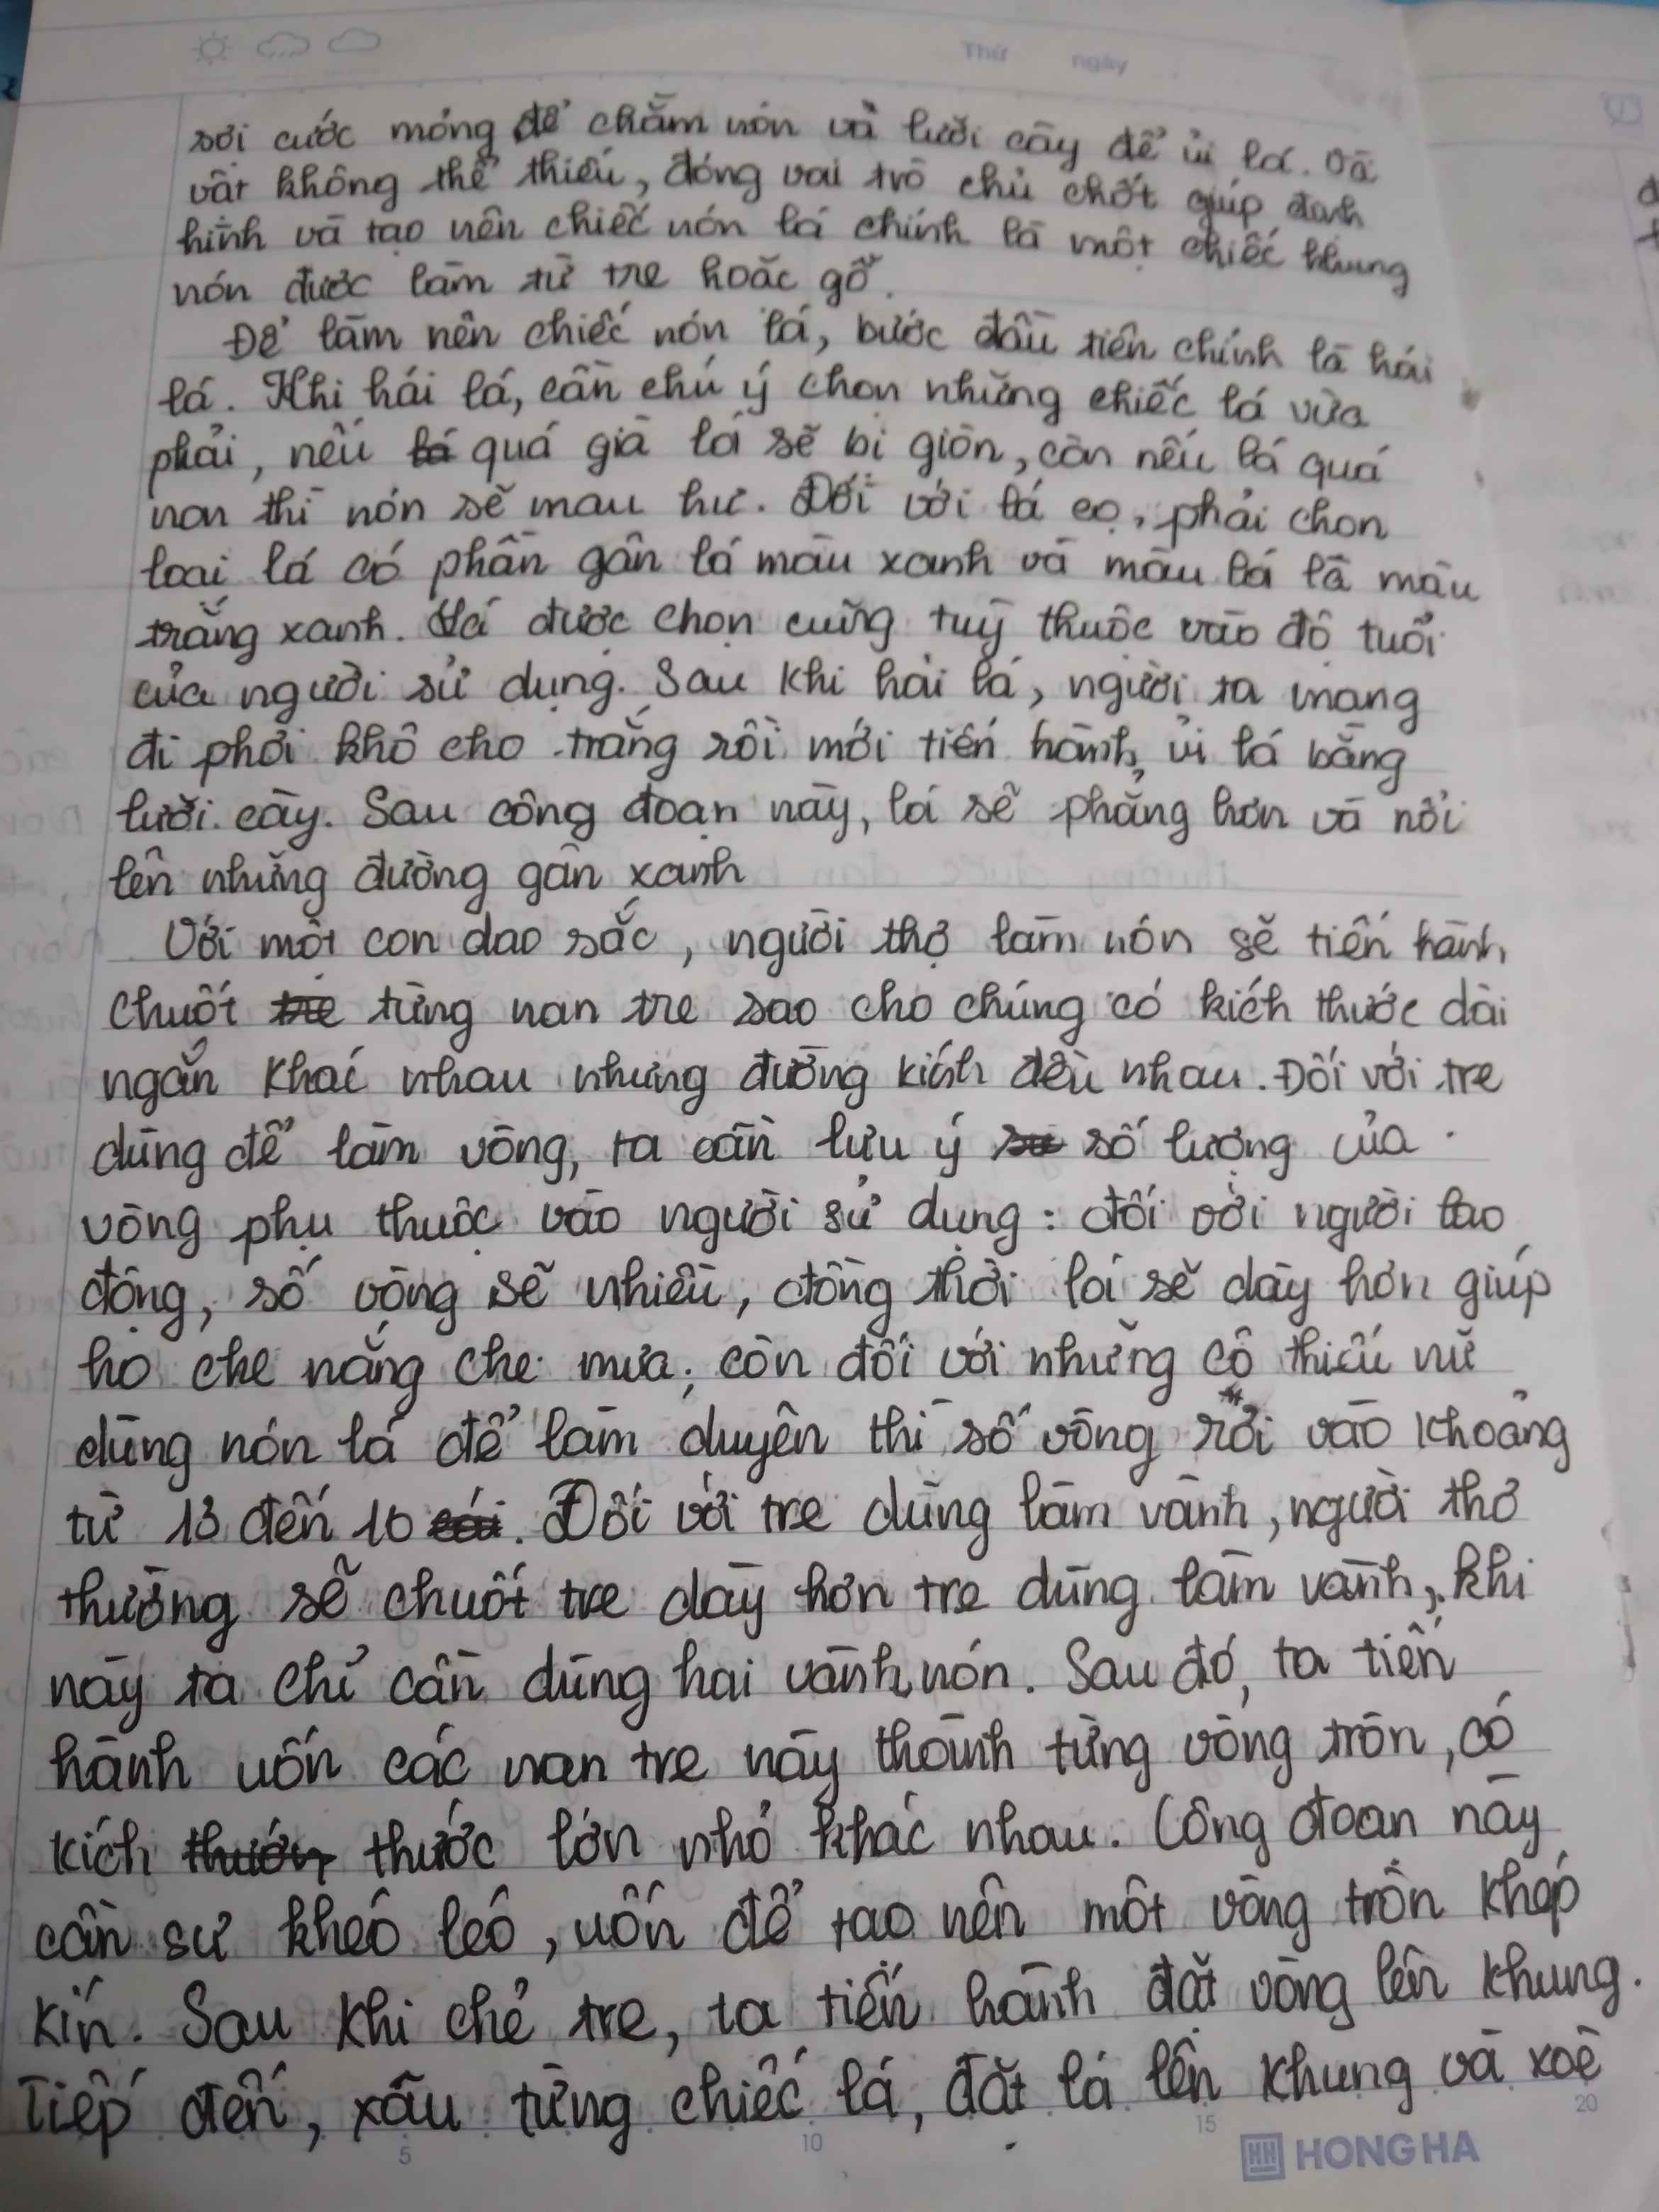 Thứ ngày
sợi cước mỏng để chằm nón và lưỡi cày để ủi lá. Và
vật không thể thiếu, đóng vai trò chủ chốt giúp định
hình và tạo nên chiếc nón lá chính là một chiếc khung
nón được làm từ tre hoặc gỗ.
Để làm nên chiếc nón lá, bước đầu tiên chính là hái
lá. Khi hái lá, cần chú ý chọn những chiếc lá vừa
phải, nếu quá già lá sẽ bị giòn, còn nếu lá quá
non thì nón sẽ mau hư. Đối với lá cọ, phải chọn
loại lá có phần gân lá màu xanh và màu lá là màu
trắng xanh. Lá được chọn cũng tuỳ thuộc vào độ tuổi
của người sử dụng. Sau khi hái lá, người ta mang
đi phơi khô cho trắng rồi mới tiến hành ủi lá bằng
lưỡi cày. Sau công đoạn này, lá sẽ phẳng hơn và nổi
lên những đường gân xanh
Với một con dao sắc, người thợ làm nón sẽ tiến hành
chuốt từng nan tre sao cho chúng có kích thước dài
ngắn khác nhau nhưng đường kính đều nhau. Đối với tre
dùng để làm vòng, ta cần lưu ý số lượng của
vòng phụ thuộc vào người sử dụng: đối với người lao
động, số vòng sẽ nhiều, đồng thời lá sẽ dày hơn giúp
họ che nắng che mưa; còn đối với những cô thiếu nữ
dùng nón lá để làm duyên thì số vòng rơi vào khoảng
từ 13 đến 16. Đối với tre dùng làm vành, người thợ
thường sẽ chuốt tre dày hơn tre dùng làm vành, khi
này ta chỉ cần dùng hai vành nón. Sau đó, ta tiến
hành uốn các nan tre này thành từng vòng tròn, có
kích thước lớn nhỏ khác nhau. Công đoạn này
cần sự khéo léo, uốn để tạo nên một vòng tròn khép
kín. Sau khi chẻ tre, ta tiến hành đặt vòng lên khung.
Tiếp đến, xâu từng chiếc lá, đặt lá lên khung và xoè
5 10 15 20
HONG HA